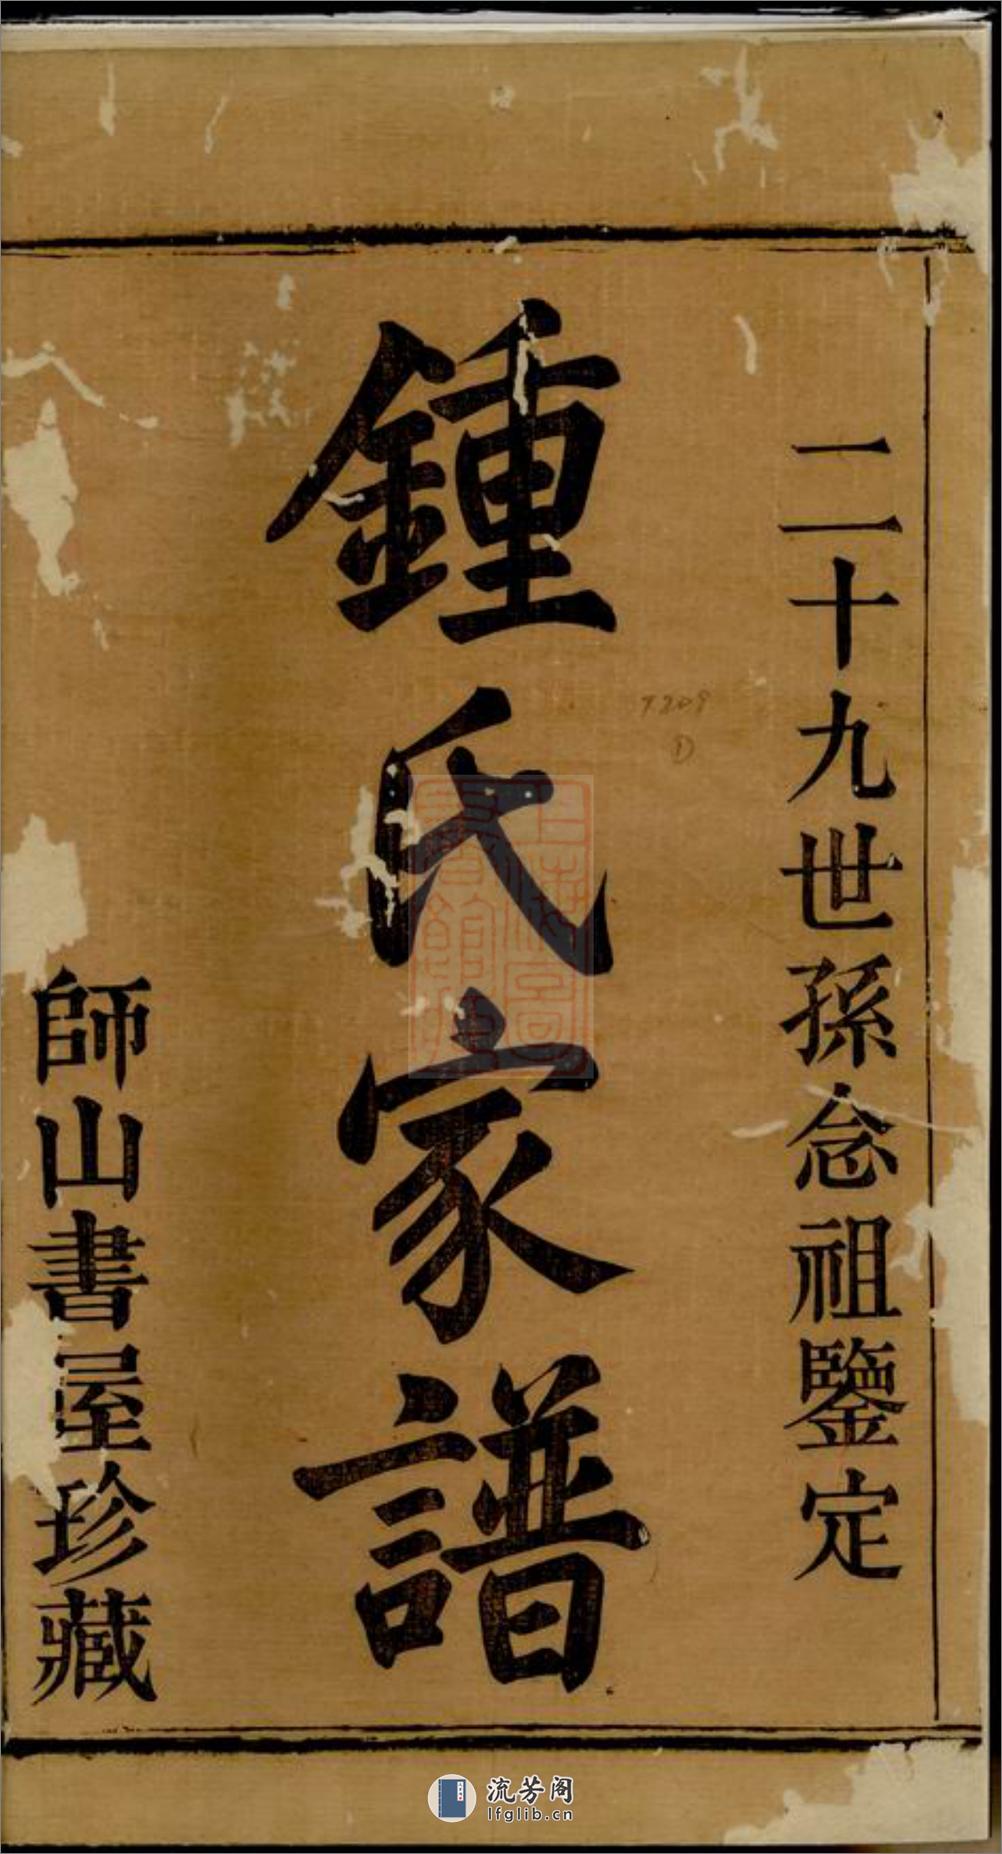 二十九世孫念祖鑒定
鍾氏家譜
師山書屋珍藏
流芳阁
lfglib.cn